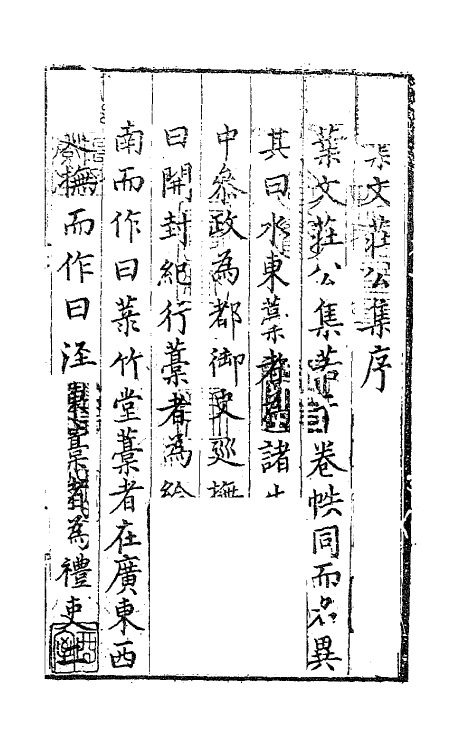 葉文莊公集序
葉文莊公集若干卷帙同而名異
其曰水東藁者為諸生
中叅政為都御史廵撫
曰開封紀行藁者為給
南而作曰菉竹堂藁者在廣東西
撫而作曰涇東藁者為禮吏